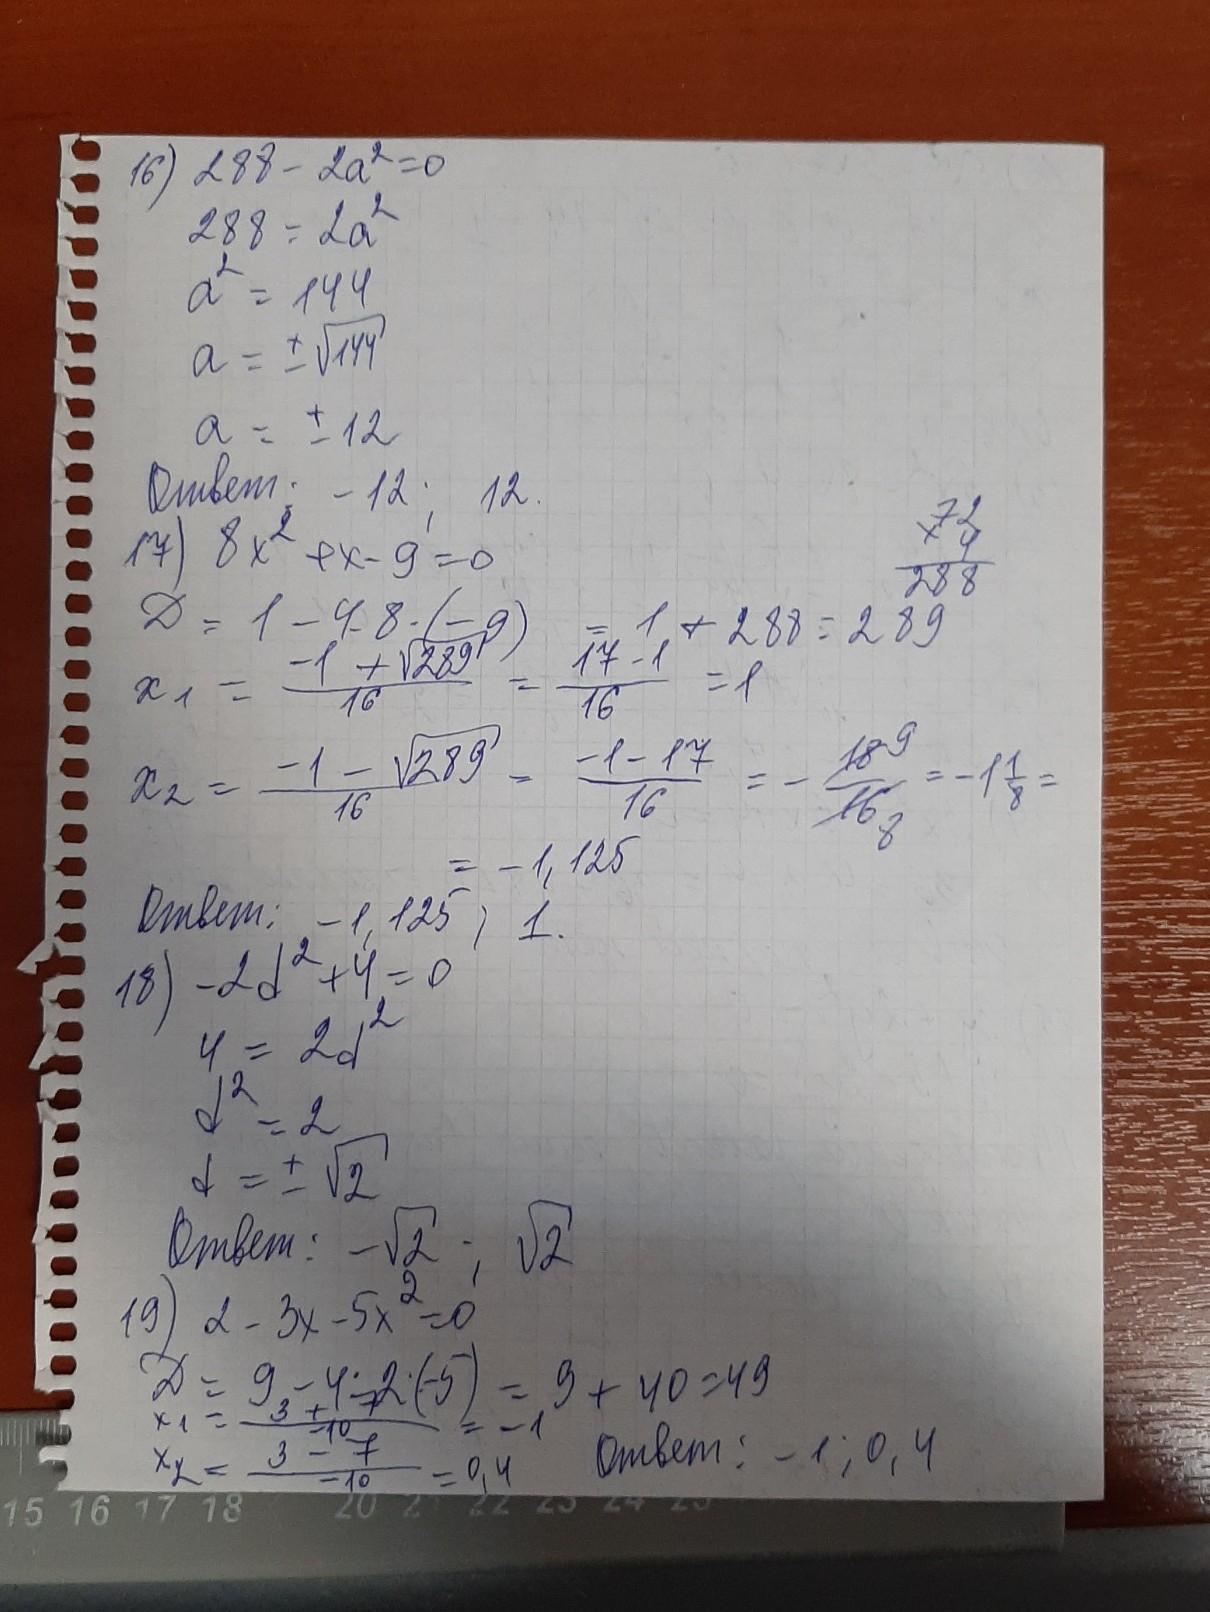 16) 288 - 2a² = 0
288 = 2a²
a² = 144
a = ±√144
a = ±12
Ответ: -12; 12.
17) 8x² + x - 9 = 0
72
× 4
288
D = 1 - 4·8·(-9) = 1 + 288 = 289
x₁ = (-1 + √289)/16 = (17 - 1)/16 = 1
x₂ = (-1 - √289)/16 = (-1 - 17)/16 = - 18 9/16 8 = -1 1/8 =
= -1,125
Ответ: -1,125; 1.
18) -2d² + 4 = 0
4 = 2d²
d² = 2
d = ±√2
Ответ: -√2; √2
19) 2 - 3x - 5x² = 0
D = 9 - 4·2·(-5) = 9 + 40 = 49
x₁ = (3 + 7)/-10 = -1
x₂ = (3 - 7)/-10 = 0,4 Ответ: -1; 0,4
15 16 17 18 20 21 22 23 24 25